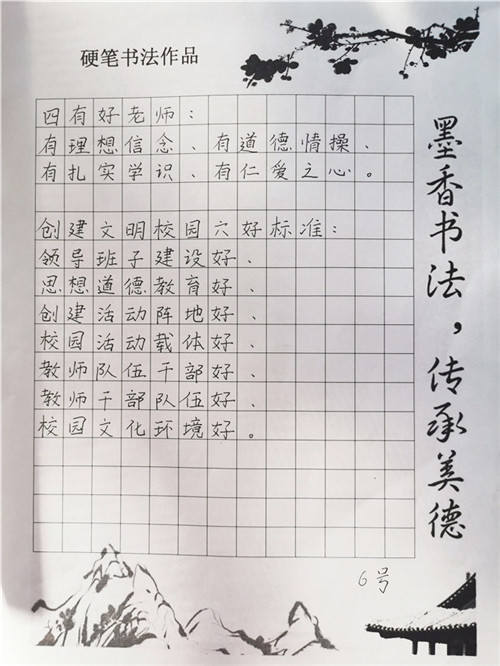 硬笔书法作品
四有好老师：
有理想信念、有道德情操、
有扎实学识、有仁爱之心。
创建文明校园六好标准：
领导班子建设好、
思想道德教育好、
创建活动阵地好、
校园活动载体好、
教师队伍干部好、
教师干部队伍好、
校园文化环境好。
墨香书法，传承美德
6号